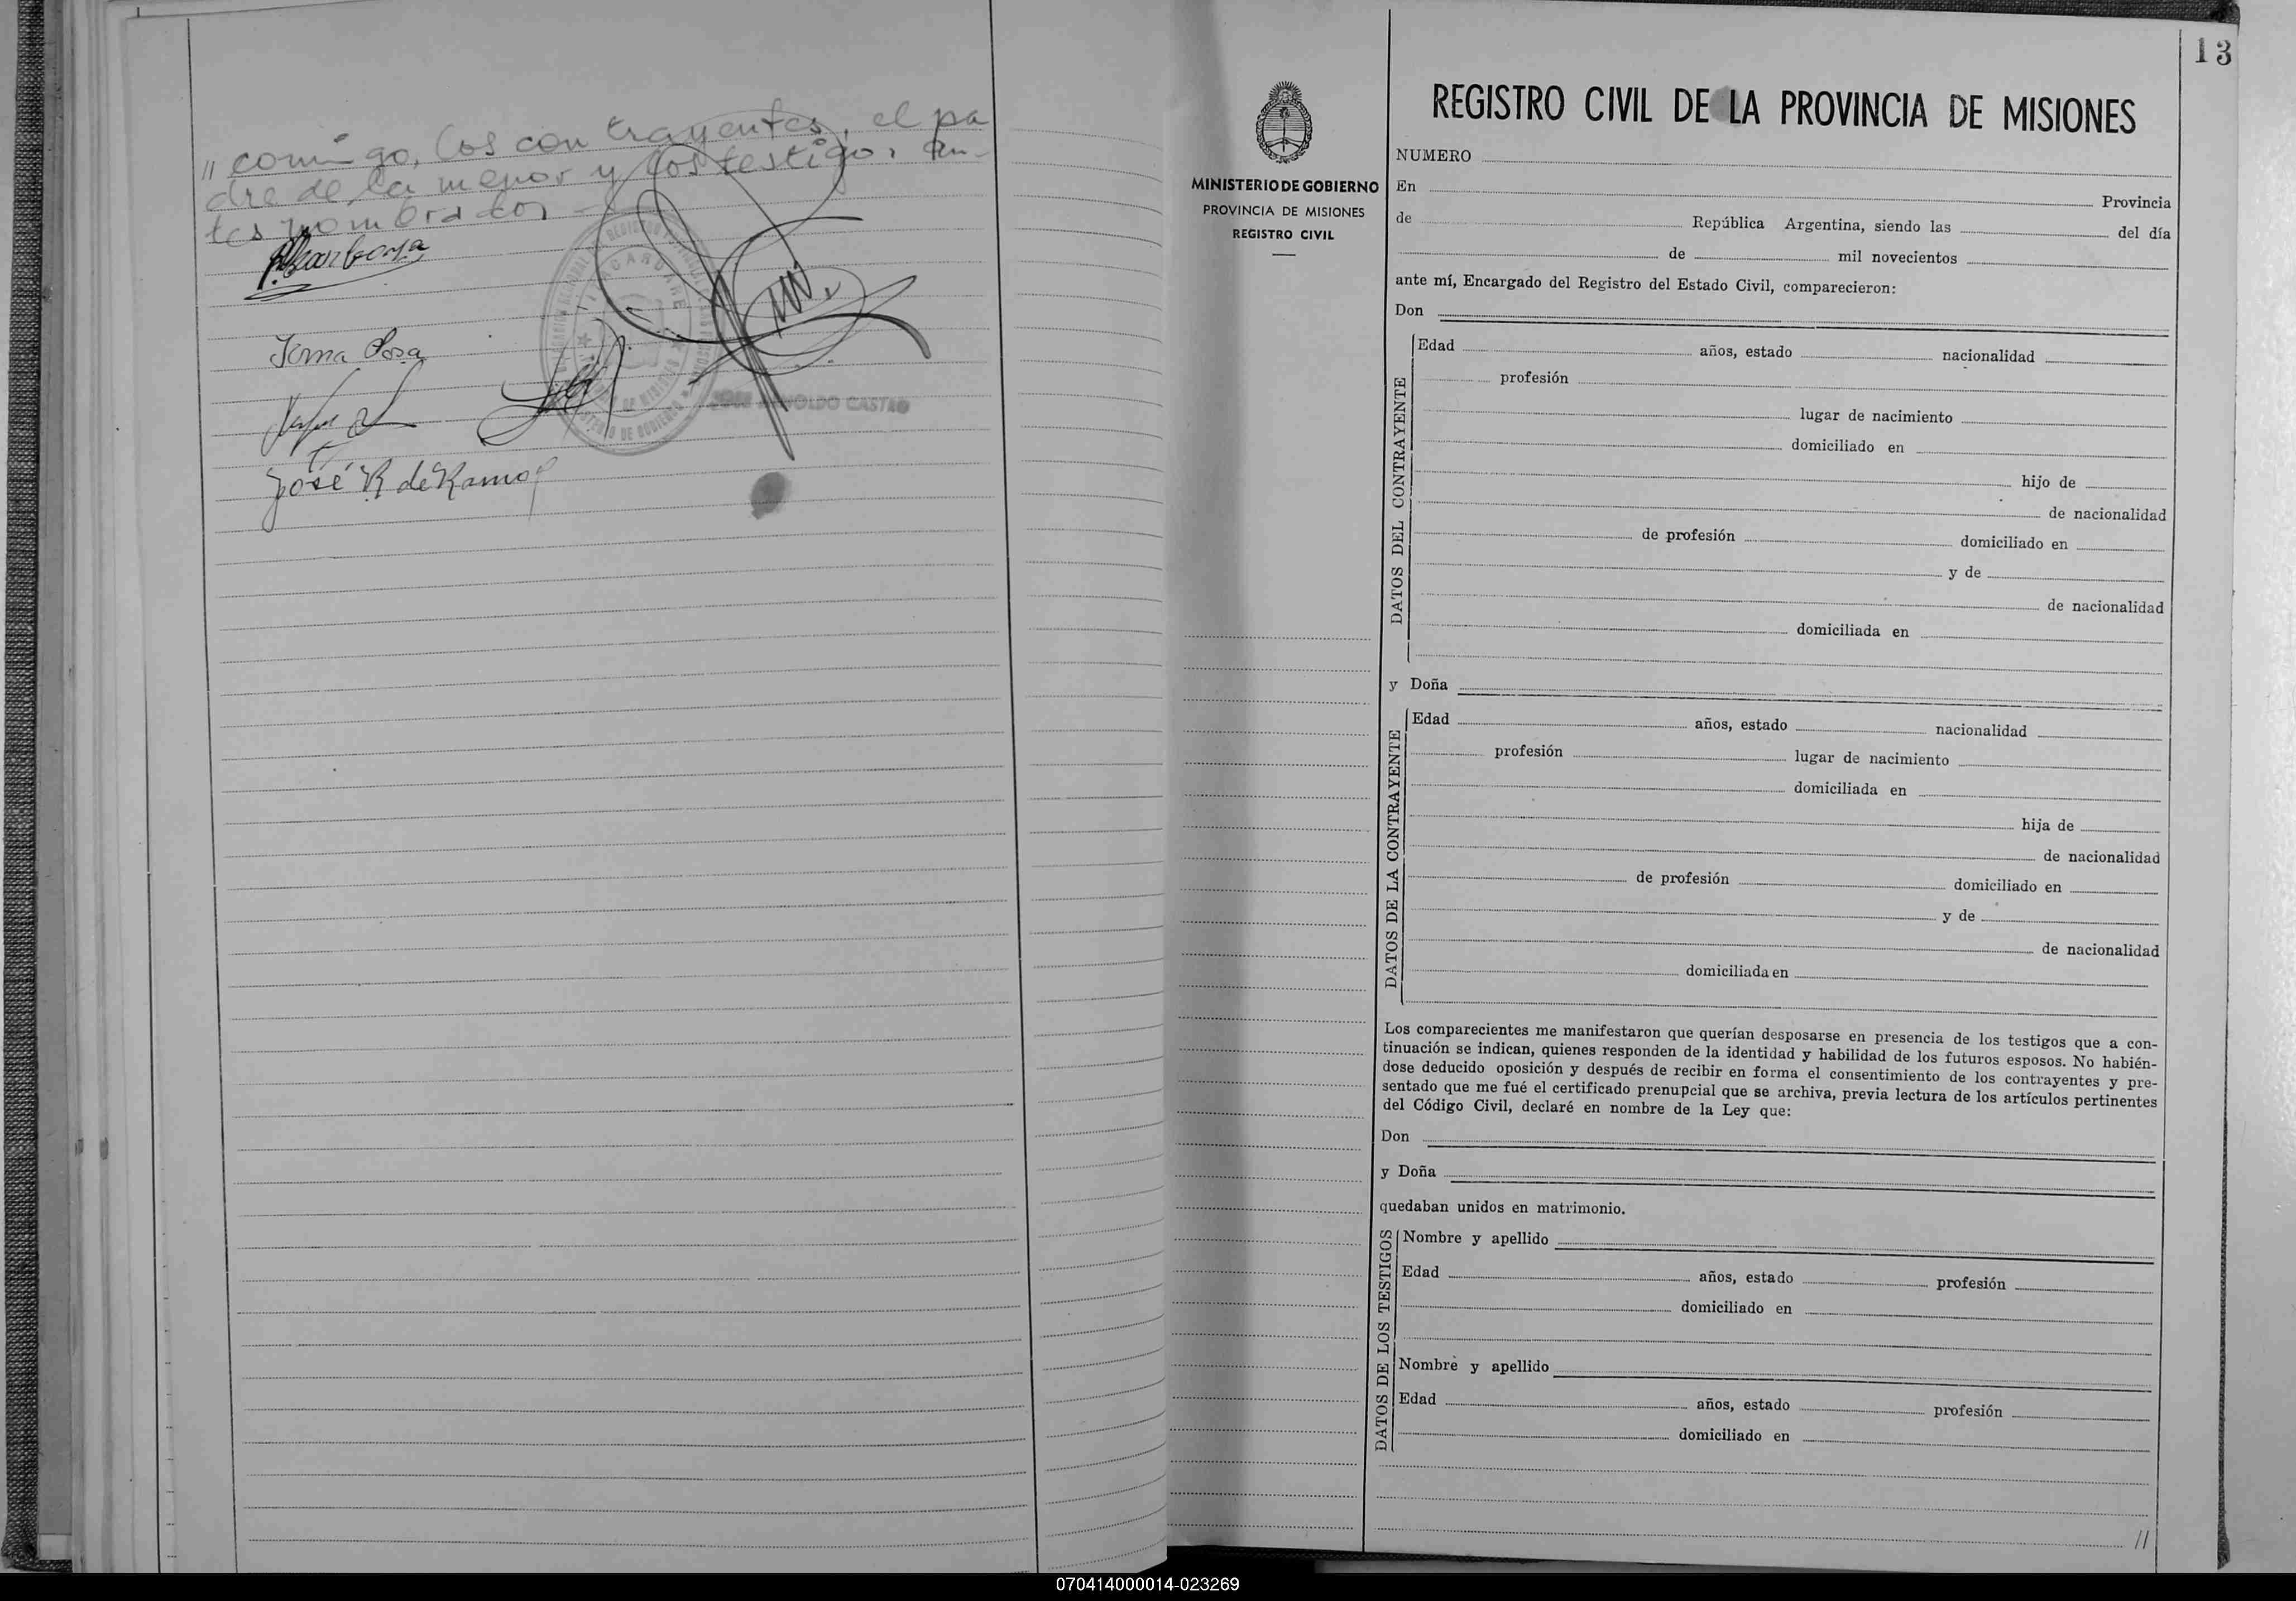 " comigo, los contrayentes, el pa
dre de la menor y los testigos an-
tes nombrados
Irma Sosa
JOSE ARNOLDO CASTRO
José R de Ramos
13
MINISTERIO DE GOBIERNO
PROVINCIA DE MISIONES
REGISTRO CIVIL
REGISTRO CIVIL DE LA PROVINCIA DE MISIONES
NUMERO
En Provincia
de República Argentina, siendo las del día
de mil novecientos
ante mí, Encargado del Registro del Estado Civil, comparecieron:
Don
DATOS DEL CONTRAYENTE
Edad años, estado nacionalidad
profesión
lugar de nacimiento
domiciliado en
hijo de
de nacionalidad
de profesión domiciliado en
y de
de nacionalidad
domiciliada en
y Doña
DATOS DE LA CONTRAYENTE
Edad años, estado nacionalidad
profesión lugar de nacimiento
domiciliada en
hija de
de nacionalidad
de profesión domiciliado en
y de
de nacionalidad
domiciliada en
Los comparecientes me manifestaron que querían desposarse en presencia de los testigos que a con-
tinuación se indican, quienes responden de la identidad y habilidad de los futuros esposos. No habién-
dose deducido oposición y después de recibir en forma el consentimiento de los contrayentes y pre-
sentado que me fué el certificado prenupcial que se archiva, previa lectura de los artículos pertinentes
del Código Civil, declaré en nombre de la Ley que:
Don
y Doña
quedaban unidos en matrimonio.
DATOS DE LOS TESTIGOS
Nombre y apellido
Edad años, estado profesión
domiciliado en
Nombre y apellido
Edad años, estado profesión
domiciliado en
//
070414000014-023269